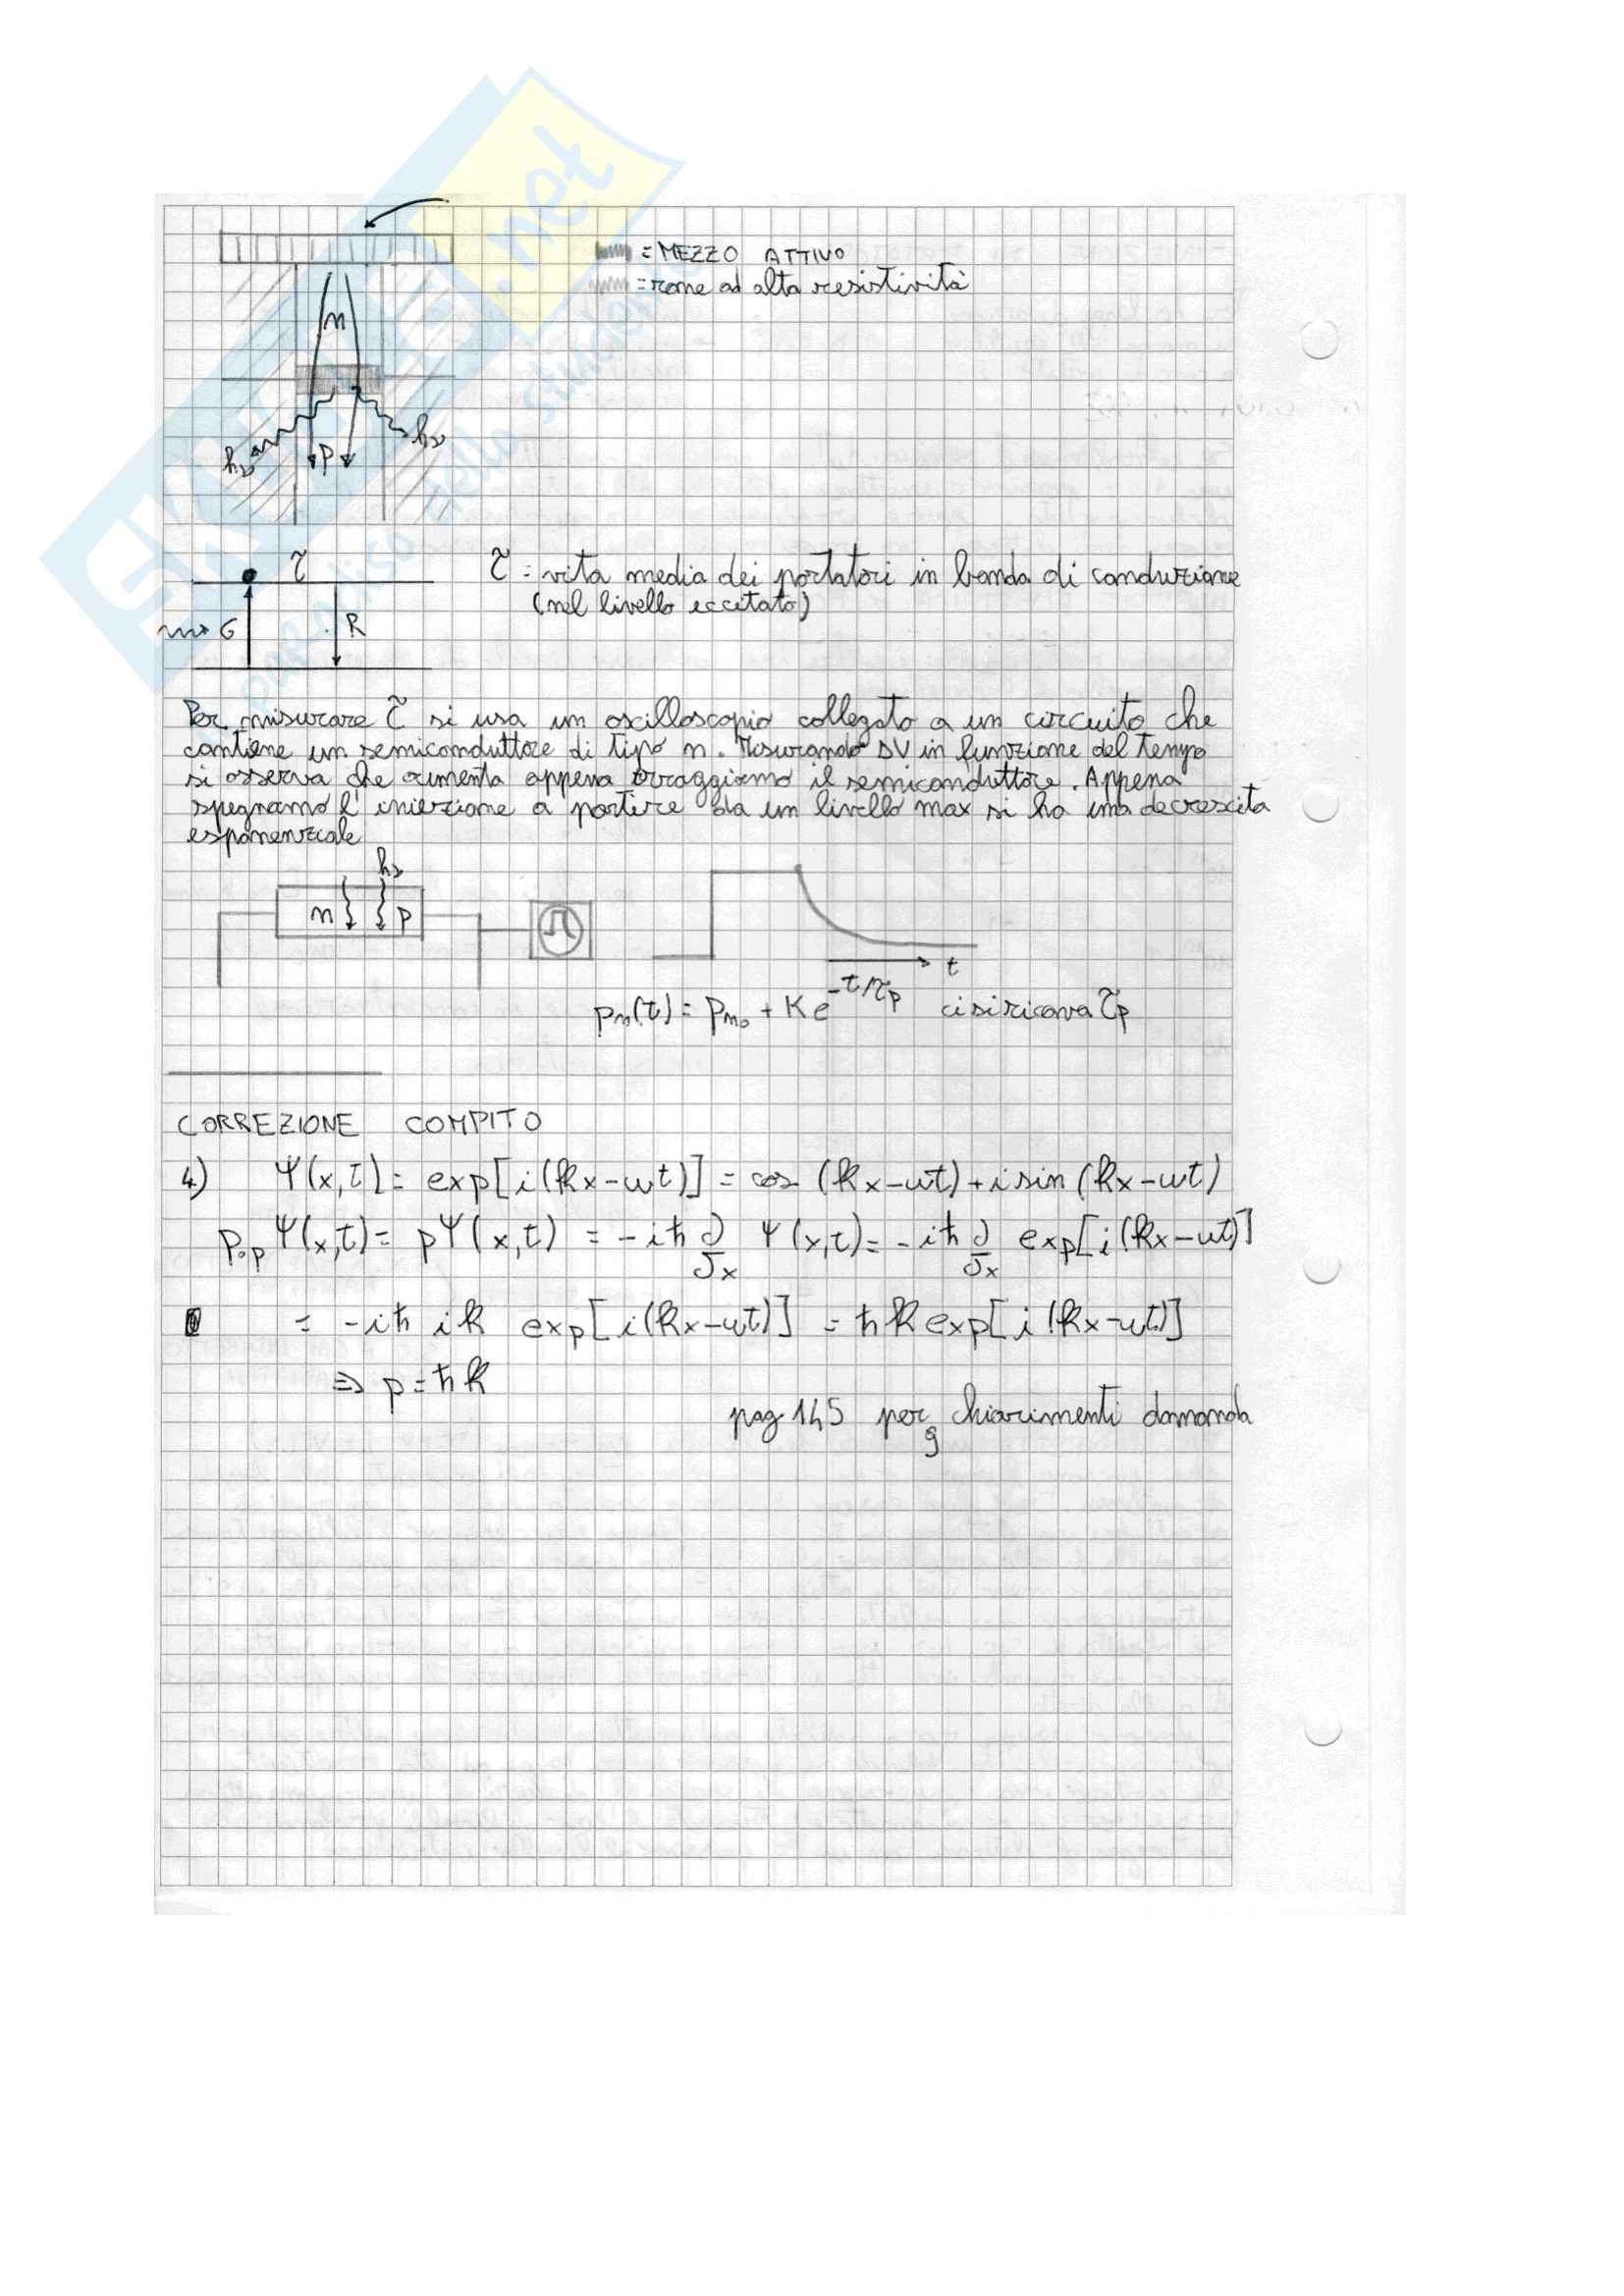 SKUOLA.net
paradiso dello studente
= MEZZO ATTIVO
= zone ad alta resistività
n
hν
p
hν
τ
τ = vita media dei portatori in banda di conduzione
(nel livello eccitato)
G
R
Per misurare τ si usa un oscilloscopio collegato a un circuito che
contiene un semiconduttore di tipo n. Misurando ΔV in funzione del tempo
si osserva che aumenta appena irraggiamo il semiconduttore. Appena
spegnamo l'iniezione a partire da un livello max si ha una decrescita
esponenziale
hν
n
p
t
pn(t) = pn₀ + K e^(-t/τp) ci si ricava τp
CORREZIONE COMPITO
4) Ψ(x,t) = exp[i(kx-ωt)] = cos (kx-ωt) + i sin (kx-ωt)
p.op Ψ(x,t) = pΨ(x,t) = -iħ ∂/∂x Ψ(x,t) = -iħ ∂/∂x exp[i(kx-ωt)]
= -iħ ik exp[i(kx-ωt)] = ħk exp[i(kx-ωt)]
⇒ p = ħk
pag 145 per chiarimenti domanda
9